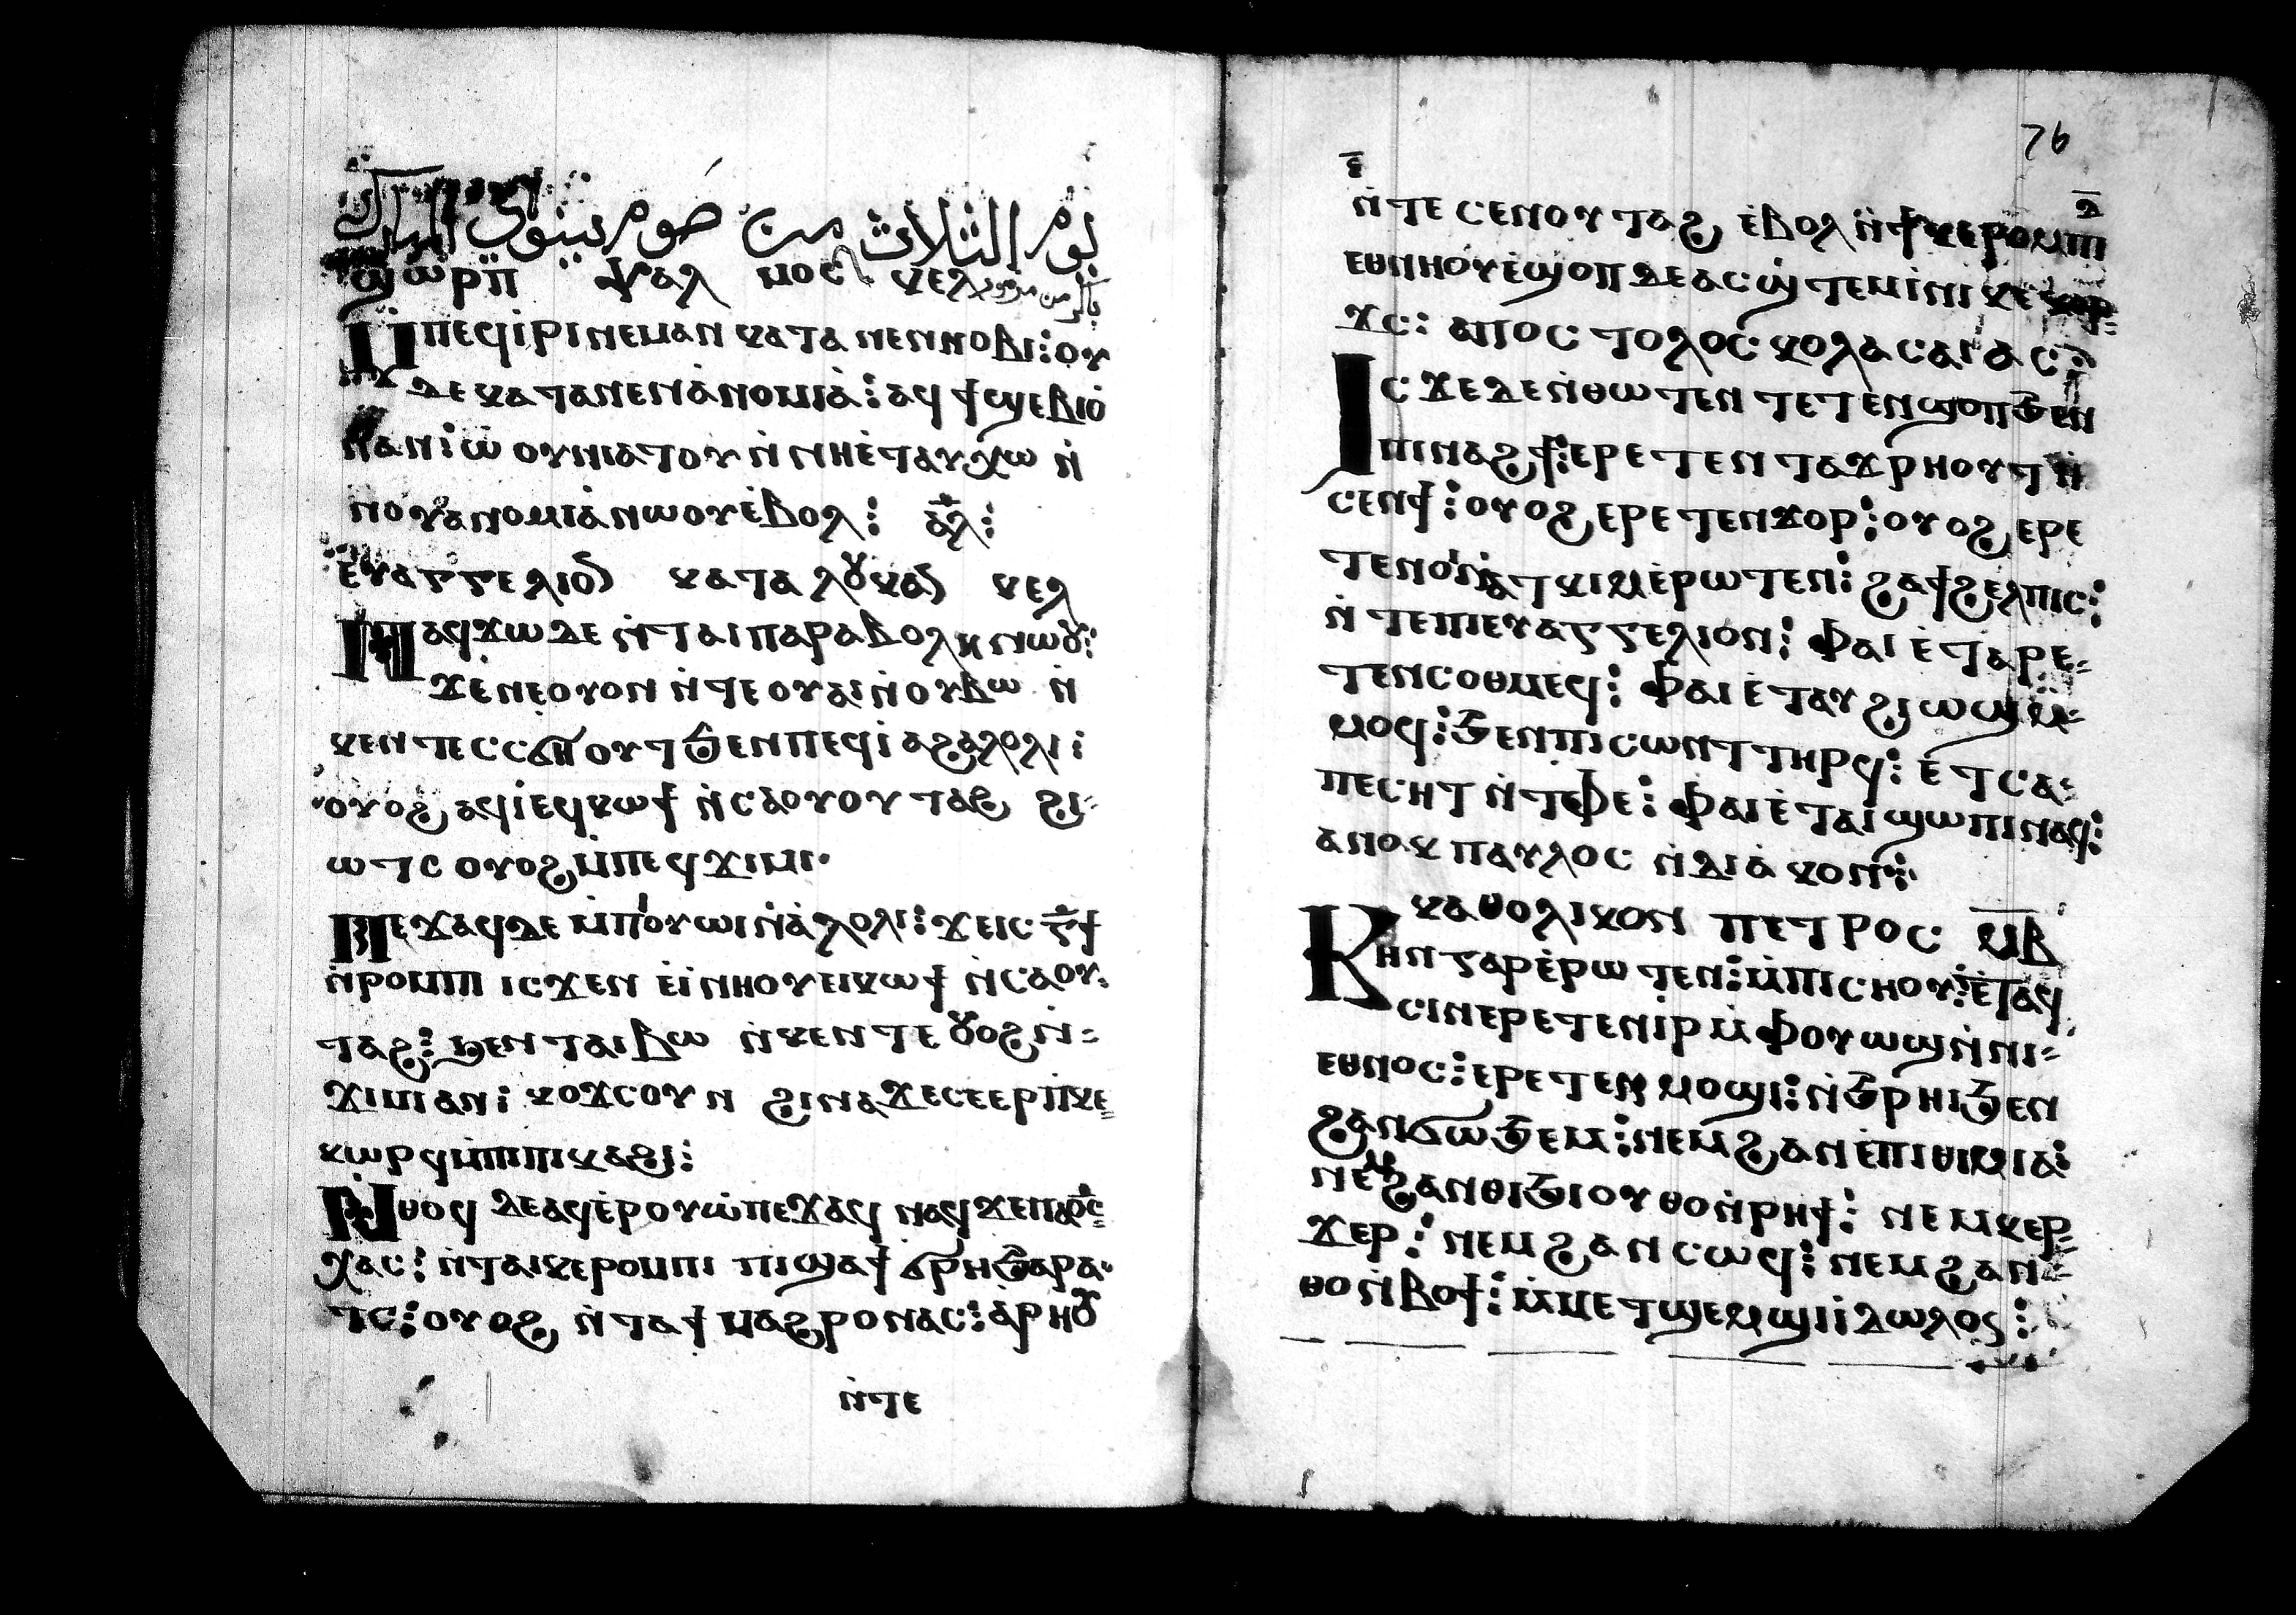 يوم الثلاث من صوم نينوى المبارك
ϣⲱⲣⲡ ⲯⲁⲗⲙⲟⲥ ⲕⲉⲗ
Ⲙⲡⲉϥⲓⲣⲓ ⲛⲉⲙⲁⲛ ⲕⲁⲧⲁ ⲛⲉⲛⲛⲟⲃⲓ: ⲟⲩ
ⲇⲉ ⲕⲁⲧⲁ ⲛⲉⲛⲁ̀ⲛⲟⲙⲓⲁ̀: ⲁϥϯϣⲉⲃⲓⲟ̀
ⲛⲁⲛ: ⲱ̀ⲟⲩⲛⲓⲁⲧⲟⲩ ⲛ̀ⲛⲏⲉ̀ⲧⲁⲩⲭⲱ ⲛ̀
ⲛⲟⲩⲁⲛⲟⲙⲓⲁ̀ ⲛⲱⲟⲩ ⲉ̀ⲃⲟⲗ: ⲁⲗ:
ⲉⲩⲁⲅⲅⲉⲗⲓⲟⲛ ⲕⲁⲧⲁ ⲗⲟⲩⲕⲁⲛ ⲕⲉⲗ
Ⲛⲁϥϫⲱ ⲇⲉ ⲛ̀ⲧⲁⲓⲡⲁⲣⲁⲃⲟⲗⲏ ⲛⲱⲟⲩ:
ϫⲉ ⲛⲉⲟⲩⲟⲛ ⲛ̀ⲧⲉ ⲟⲩⲁⲓ ⲛ̀ⲟⲩⲃⲱ ⲛ̀
ⲕⲉⲛⲧⲉ ⲥⲥϭⲏⲟⲩⲧ ϧⲉⲛ ⲡⲉϥⲓⲁϩⲁⲗⲟⲗⲓ:
ⲟⲩⲟϩ ⲁϥⲓ̀ ⲉϥⲕⲱϯ ⲛ̀ⲥⲁ ⲟⲩⲟⲩⲧⲁϩ ϩⲓ-
ⲱⲧⲥ ⲟⲩⲟϩ ⲙ̀ⲡⲉϥϫⲓⲙⲓ·
Ⲡⲉϫⲁϥ ⲇⲉ ⲙ̀ⲡⲟⲩⲱⲓ ⲛ̀ⲁ̀ⲗⲟⲗⲓ: ϫⲉ ⲓⲥ ⲅϯ
ⲛ̀ⲣⲟⲙⲡⲓ ⲓⲥϫⲉⲛ ⲉⲓ̀ⲛⲏⲟⲩ ⲉⲓⲕⲱϯ ⲛ̀ⲥⲁ ⲟⲩ
ⲧⲁϩ: ϧⲉⲛ ⲧⲁⲓⲃⲱ ⲛ̀ⲕⲉⲛⲧⲉ ⲟⲩⲟϩ ⲛ̀-
ϫⲓⲙⲓ ⲁⲛ: ⲕⲟϫⲥ ⲟⲩⲛ ϩⲓⲛⲁ ϫⲉ ⲥⲉⲉⲣⲡⲕⲉ
ⲕⲱⲣϥ ⲙ̀ⲡⲓⲡⲓⲕⲁϩⲓ:
Ⲛ̀ⲑⲟϥ ⲇⲉ ⲁϥⲉ̀ⲣⲟⲩⲱ̀ ⲡⲉϫⲁϥ ⲛⲁϥ ϫⲉ ⲡⲁⲟ̅ⲥ̅
ⲭⲁⲥ: ⲛ̀ⲧⲁⲓⲕⲉⲣⲟⲙⲡⲓ ⲡⲓϣⲁϯ ϭⲣⲏ ϧⲁⲣⲁ
ⲧⲥ: ⲟⲩⲟϩ ⲛ̀ⲧⲁϯ ⲙⲁϩⲣⲟ ⲛⲁⲥ: ⲁ̀ⲣⲏⲟⲩ
ⲛ̀ⲧⲉ
76
ⲛ̀ⲧⲉⲥⲉⲛⲟⲩⲧⲁϩ ⲉ̀ⲃⲟⲗ ⲛ̀ϯⲕⲉⲣⲟⲙⲡⲓ
ⲉⲑⲛⲏⲟⲩ ⲉ̀ϣⲟⲡ ⲇⲉ ⲁⲥϣ̀ⲧⲉⲙⲓ̀ⲛⲓ
ϫⲥ: ⲁⲡⲟⲥⲧⲟⲗⲟⲥ ⲕⲟⲗⲁⲥⲁⲓⲁⲥ:
Ⲓⲥϫⲉ ⲇⲉ ⲛ̀ⲑⲱⲧⲉⲛ ⲧⲉⲧⲉⲛϣⲟⲡ ϧⲉⲛ
ⲡⲓⲛⲁϩϯ: ⲉⲣⲉⲧⲉⲛⲧⲁϫⲣⲏⲟⲩⲧ ⲛ̀
ⲥⲉⲛϯ: ⲟⲩⲟϩ ⲉⲣⲉⲧⲉⲛϫⲟⲣ: ⲟⲩⲟϩ ⲉⲣⲉ
ⲧⲉⲛⲟⲓ ⲛ̀ⲁⲧⲕⲓⲙ ⲉ̀ⲣⲱⲧⲉⲛ: ϩⲁ ϯϩⲉⲗⲡⲓⲥ:
ⲛ̀ⲧⲉ ⲡⲓⲉⲩⲁⲅⲅⲉⲗⲓⲟⲛ: ⲫⲁⲓ ⲉ̀ⲧⲁⲣⲉ-
ⲧⲉⲛⲥⲟⲑⲙⲉϥ: ⲫⲁⲓ ⲉ̀ⲧⲁⲩϩⲓⲱⲓϣ ⲙ̀-
ⲙⲟϥ: ϧⲉⲛ ⲡⲓⲥⲱⲛⲧ ⲧⲏⲣϥ: ⲉ̀ⲧⲥⲁ-
ⲡⲉⲥⲏⲧ ⲛ̀ⲧⲫⲉ: ⲫⲁⲓ ⲉ̀ⲧⲁⲓϣⲱⲡⲓ ⲛⲁϥ:
ⲁⲛⲟⲕ ⲡⲁⲩⲗⲟⲥ ⲛ̀ⲇⲓⲁ̀ⲕⲟⲛ:
ⲕⲁⲑⲟⲗⲓⲕⲟⲛ ⲡⲉⲧⲣⲟⲥ ⲙ̅ⲃ̅
Ⲕⲏⲛ ⲅⲁⲣ ⲉ̀ⲣⲱⲧⲉⲛ: ⲙ̀ⲡⲓⲥⲏⲟⲩ: ⲉ̀ⲧⲁϥ
ⲥⲓⲛⲉⲣⲉⲧⲉⲛⲓ̀ⲣⲓ ⲙ̀ⲫⲟⲩⲱϣ ⲛ̀ⲛⲓ-
ⲉⲑⲛⲟⲥ: ⲉⲣⲉⲧⲉⲛⲙⲟϣⲓ: ⲛ̀ϧⲣⲏⲓ ϧⲉⲛ
ϩⲁⲛϭⲱϧⲉⲙ: ⲛⲉⲙ ϩⲁⲛⲉ̀ⲡⲓⲑⲓⲙⲓⲁ:
ⲛⲉⲙ ϩⲁⲛⲑⲓϧⲓ ⲟⲩⲑⲟ ⲛ̀ⲣⲏϯ: ⲛⲉⲙ ⲕⲉⲣ
ϫⲉⲣ: ⲛⲉⲙ ϩⲁⲛⲥⲱϥ: ⲛⲉⲙ ϩⲁⲛ-
ⲑⲟ ⲛ̀ⲃⲟϯ: ⲙ̀ⲙⲉⲧϣⲉⲙϣⲓ ⲓⲇⲱⲗⲟⲥ: